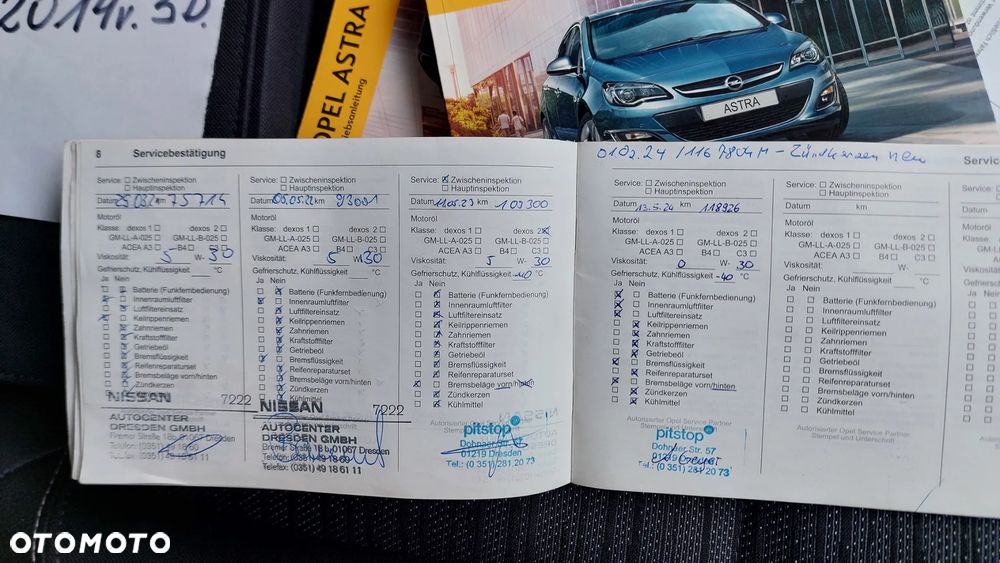 2014r.
OPEL ASTRA
ebsanleitung
ASTRA
8 Servicebestätigung
Service: Zwischeninspektion
Hauptinspektion
Datum km 75714
Motoröl
Klasse: dexos 1 dexos 2
GM-LL-A-025 GM-LL-B-025
ACEA A3 B4 C3
Viskosität: 5 W- 30
Gefrierschutz, Kühlflüssigk. °C
Ja Nein
Batterie (Funkfernbedienung)
Innenraumluftfilter
Luftfiltereinsatz
Keilrippenriemen
Zahnriemen
Kraftstofffilter
Getriebeöl
Bremsflüssigkeit
Reifenreparaturset
Bremsbeläge vorn/hinten
Zündkerzen
NISSAN 7222
AUTOCENTER
DRESDEN GMBH
Bremer Straße 18b, 01067 Dresden
Telefon: (0351) 49 18 60
Telefax: (0351) 49 18 61 11
Service: Zwischeninspektion
Hauptinspektion
Datum 05.05.22 km 93091
Motoröl
Klasse: dexos 1 dexos 2
GM-LL-A-025 GM-LL-B-025
ACEA A3 B4 C3
Viskosität: 5 W- 30
Gefrierschutz, Kühlflüssigk. °C
Ja Nein
Batterie (Funkfernbedienung)
Innenraumluftfilter
Luftfiltereinsatz
Keilrippenriemen
Zahnriemen
Kraftstofffilter
Getriebeöl
Bremsflüssigkeit
Reifenreparaturset
Bremsbeläge vorn/hinten
Zündkerzen
Kühlmittel
NISSAN 7222
AUTOCENTER
DRESDEN GMBH
Bremer Straße 18 b, 01067 Dresden
Telefon: (0351) 49 18 60
Telefax: (0351) 49 18 61 11
Service: Zwischeninspektion
Hauptinspektion
Datum 11.05.23 km 109300
Motoröl
Klasse: dexos 1 dexos 2
GM-LL-A-025 GM-LL-B-025
ACEA A3 B4 C3
Viskosität: 5 W- 30
Gefrierschutz, Kühlflüssigk. -40 °C
Ja Nein
Batterie (Funkfernbedienung)
Innenraumluftfilter
Luftfiltereinsatz
Keilrippenriemen
Zahnriemen
Kraftstofffilter
Getriebeöl
Bremsflüssigkeit
Reifenreparaturset
Bremsbeläge vorn/hinten
Zündkerzen
Kühlmittel
pitstop
Dohnaer Str. 57
01219 Dresden
Tel.: (0 351) 281 20 73
01.02.24 / 116 780 KM - Zündkerzen neu
Service: Zwischeninspektion
Hauptinspektion
Datum 13.5.24 km 118926
Motoröl
Klasse: dexos 1 dexos 2
GM-LL-A-025 GM-LL-B-025
ACEA A3 B4 C3
Viskosität: 0 W- 30
Gefrierschutz, Kühlflüssigk. -40 °C
Ja Nein
Batterie (Funkfernbedienung)
Innenraumluftfilter
Luftfiltereinsatz
Keilrippenriemen
Zahnriemen
Kraftstofffilter
Getriebeöl
Bremsflüssigkeit
Reifenreparaturset
Bremsbeläge vorn/hinten
Zündkerzen
Kühlmittel
Autorisierter Opel Service Partner
Stempel und Unterschrift
pitstop
Dohnaer Str. 57
01219 Dresden
Tel.: (0 351) 281 20 73
Service: Zwischeninspektion
Hauptinspektion
Datum km
Motoröl
Klasse: dexos 1 dexos 2
GM-LL-A-025 GM-LL-B-025
ACEA A3 B4 C3
Viskosität: W-
Gefrierschutz, Kühlflüssigk. °C
Ja Nein
Batterie (Funkfernbedienung)
Innenraumluftfilter
Luftfiltereinsatz
Keilrippenriemen
Zahnriemen
Kraftstofffilter
Getriebeöl
Bremsflüssigkeit
Reifenreparaturset
Bremsbeläge vorn/hinten
Zündkerzen
Kühlmittel
Autorisierter Opel Service Partner
Stempel und Unterschrift
Servic
Service:
Datum
Motoröl
Klasse:
Viskosität:
Gefriersch
Ja Nein
OTOMOTO